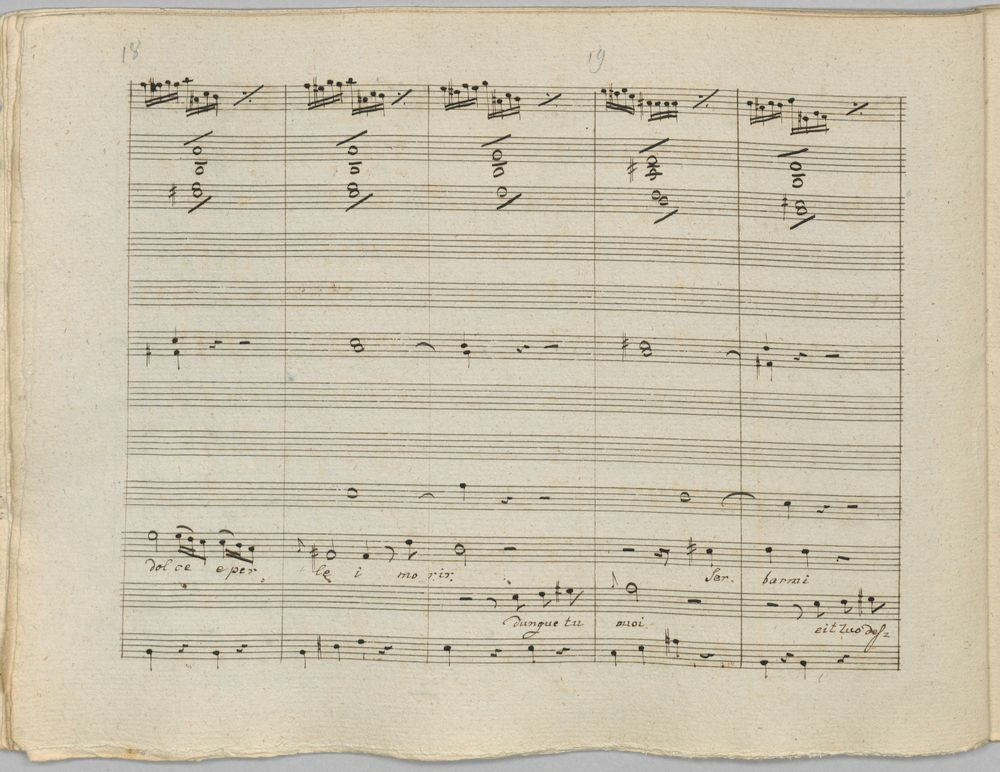 18 19
dolce e per le i morir. Ser. barmi
dunque tu muoi e il tuo des=